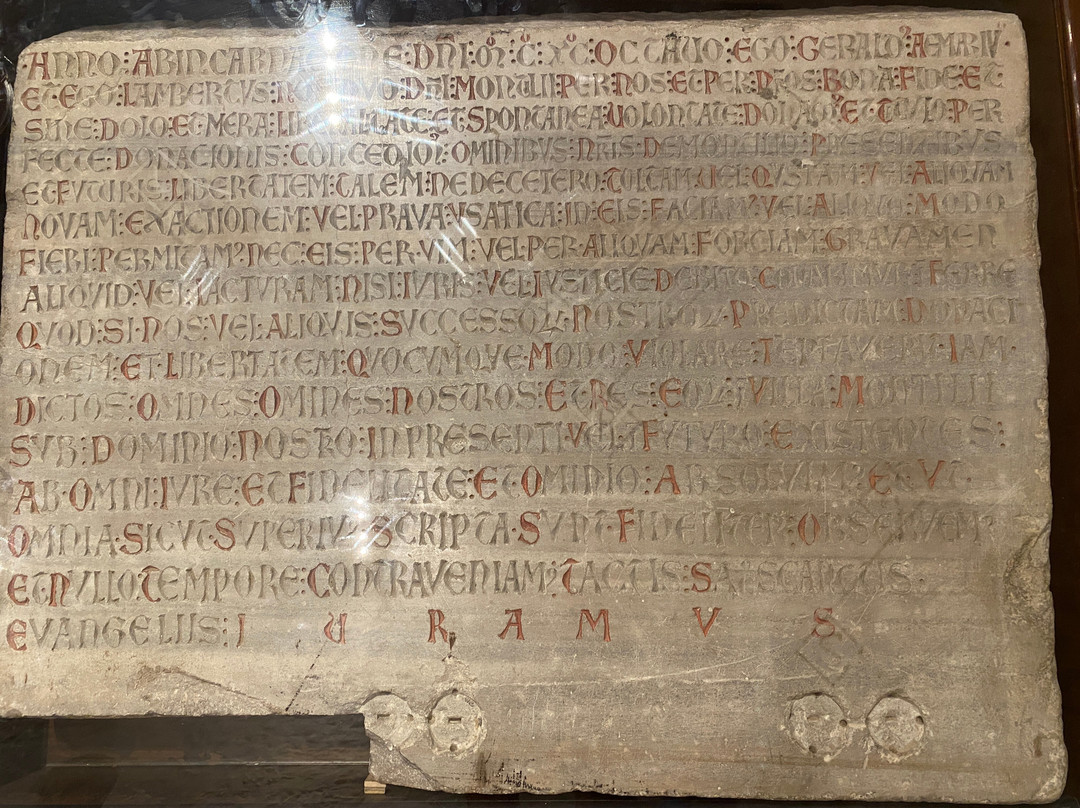 ANNO : AB INCARNATIONE : DNI : M̊ : C̊ : XC̊ : OCTAVO : EGO : GERALD' : AEMARIV' :
ET : EGO : LAMBERTVS : DNI : MONTILII : PER : NOS : ET : PER : : BONA : FIDE : ET
SINE : DOLO : ET MERA : LIBERALITATE : ET SPONTANEA : VOLONTATE : DONAM' : ET TITVLO : PER
FECTE : DONACIONIS : CONCEDIM' : OMINIBVS : NRIS : DE MONTILIO : PRESENTIBVS
ET FVTVRIS : LIBERTATEM : TALEM : NE DECETERO : TOLTAM : VEL : QVSTAM : VEL : ALIQVAM
NOVAM : EXACTIONEM : VEL : PRAVA : VSATICA : IN : EIS : FACIAM' : VEL : ALIQVO : MODO
FIERI : PERMITAM' : NEC : EIS : PER : VIM : VEL : PER : ALIQVAM : FORCIAM : GRAVAMEN
ALIQVID : VEL : IACTVRAM : NISI : IVRIS : VEL : IVSTICIE : DEBITO : FERRE
QVOD : SI : NOS : VEL : ALIQVIS : SVCCESSOꝜ : NOSTROꝜ : PREDICTAM : DONACI
ONEM : ET : LIBERTATEM : QVOCVMQVE : MODO : VIOLARE : TEPTAVERIT : IAM
DICTOS : OMINES : OMINES : NOSTROS : ET RES : EOꝜ : I VILLA : MONTILII
SVB : DOMINIO : NOSTRO : IN PRESENTI : VEL : I FVTVRO : EXISTENTES :
AB : OMNI : IVRE : ET FIDELITATE : ET OMINIO : ABSOLVIM' : ET VT
OMNIA : SICVT : SVPERIV' : SCRIPTA : SVNT : FIDELITER : OBSERVENT
ET : NVLLO : TEMPORE : CONTRAVENIAM' : TACTIS : SACROSCANTIS
EVANGELIIS : I V R A M V S